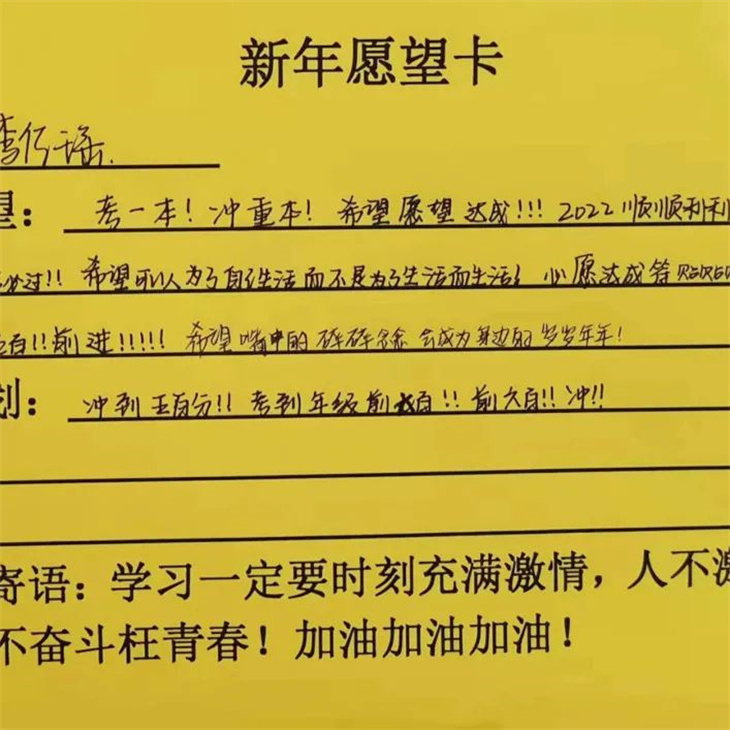 新年愿望卡
望： 考一本！冲重本！希望愿望达成!!! 2022顺顺利利
必过!! 希望可以人为了自己生活而不是为了生活而生活！心愿达成符
百!!前进!!!!! 希望嘴中的碎碎念会成为身边的岁岁年年！
划： 冲到五百分!! 考到年级前百!! 前六百!! 冲!!
寄语：学习一定要时刻充满激情，人不激
不奋斗枉青春！加油加油加油！